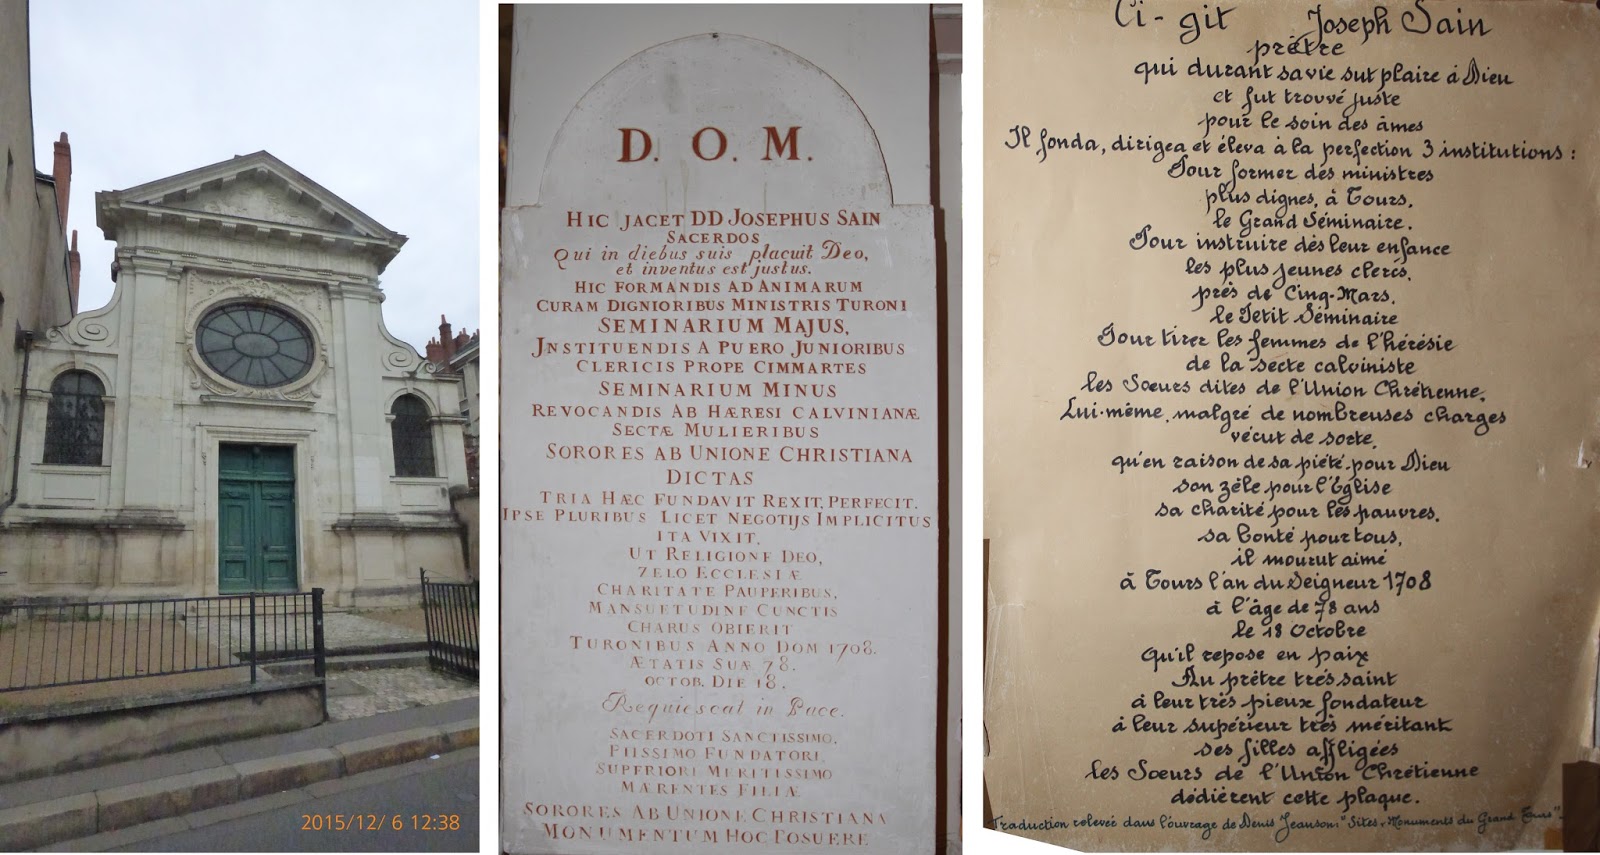 2015/12/ 6 12:38
D. O. M.
HIC JACET DD JOSEPHUS SAIN
SACERDOS
Qui in diebus suis placuit Deo,
et inventus est justus.
HIC FORMANDIS AD ANIMARUM
CURAM DIGNIORIBUS MINISTRIS TURONI
SEMINARIUM MAJUS,
JNSTITUENDIS A PUERO JUNIORIBUS
CLERICIS PROPE CIMMARTES
SEMINARIUM MINUS
REVOCANDIS AB HÆRESI CALVINIANÆ
SECTÆ MULIERIBUS
SORORES AB UNIONE CHRISTIANA
DICTAS
TRIA HÆC FUNDAVIT REXIT, PERFECIT.
IPSE PLURIBUS LICET NEGOTIJS IMPLICITUS
ITA VIXIT,
UT RELIGIONE DEO,
ZELO ECCLESIÆ
CHARITATE PAUPERIBUS,
MANSUETUDINE CUNCTIS
CHARUS OBIERIT
TURONIBUS ANNO DOM 1708.
ÆTATIS SUÆ 78.
OCTOB. DIE 18.
Requiescat in Pace.
SACERDOTI SANCTISSIMO,
PIISSIMO FUNDATORI,
SUPERIORI MERITISSIMO
MÆRENTES FILIÆ
SORORES AB UNIONE CHRISTIANA
MONUMENTUM HOC POSUERE
Ci-git Joseph Sain
prêtre
qui durant sa vie sut plaire à Dieu
et fut trouvé juste
pour le soin des âmes
Il fonda, dirigea et éleva à la perfection 3 institutions :
Pour former des ministres
plus dignes, à Tours,
le Grand Séminaire.
Pour instruire dès leur enfance
les plus jeunes clercs,
près de Cinq-Mars,
le Petit Séminaire
Pour tirer les femmes de l'hérésie
de la secte calviniste
les Sœurs dites de l'Union Chrétienne,
Lui-même, malgré de nombreuses charges
vécut de sorte,
qu'en raison de sa piété pour Dieu
son zèle pour l'Eglise
sa charité pour les pauvres,
sa bonté pour tous,
il mourut aimé
à Tours l'an du Seigneur 1708
à l'âge de 78 ans
le 18 Octobre
Qu'il repose en paix
Au prêtre très saint
à leur très pieux fondateur
à leur supérieur très méritant
ses filles affligées
les Sœurs de l'Union Chrétienne
dédièrent cette plaque.
Traduction relevée dans l'ouvrage de Denis Jeanson: "Sites et Monuments du Grand Tours"